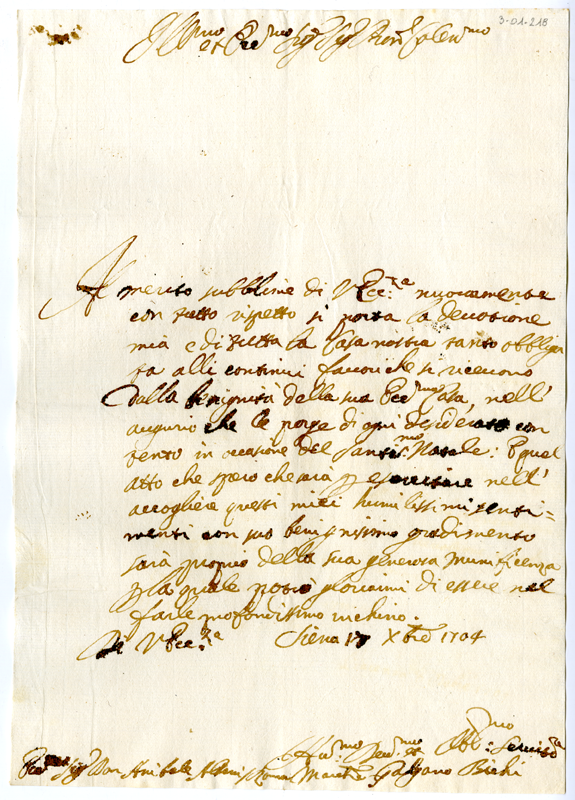 3-01-218
Ill.mo et Ecc.mo Sig.r Sig.r Pron. Colen.mo
Al merito sublime di V. Ecc.za nuovamente
con tutto rispetto si porta la devotione
mia e di tutta la Casa nostra tanto obbliga
ta alli continui favori che si ricevono
dalla benignità della sua Ecc.ma Casa, nell'
augurio che le porge di ogni desiderato con
tento in occasione del Santis.mo Natale: E quel
atto che spero che sarà p esercitare nell'
accogliere questi miei humilissimi senti=
menti con suo benignissimo gradimento
sarà proprio della sua generosa munificenza
p la quale potrò gloriarmi di essere nel
farle profondissimo inchino.
Di V. Ecc.za Siena 17 Xbre 1704
Hu.mo Dev.mo et Obb.mo Servito.re
Ecc.mo Sig.r Don Anibale Albani Roma Marche Galgano Bichi